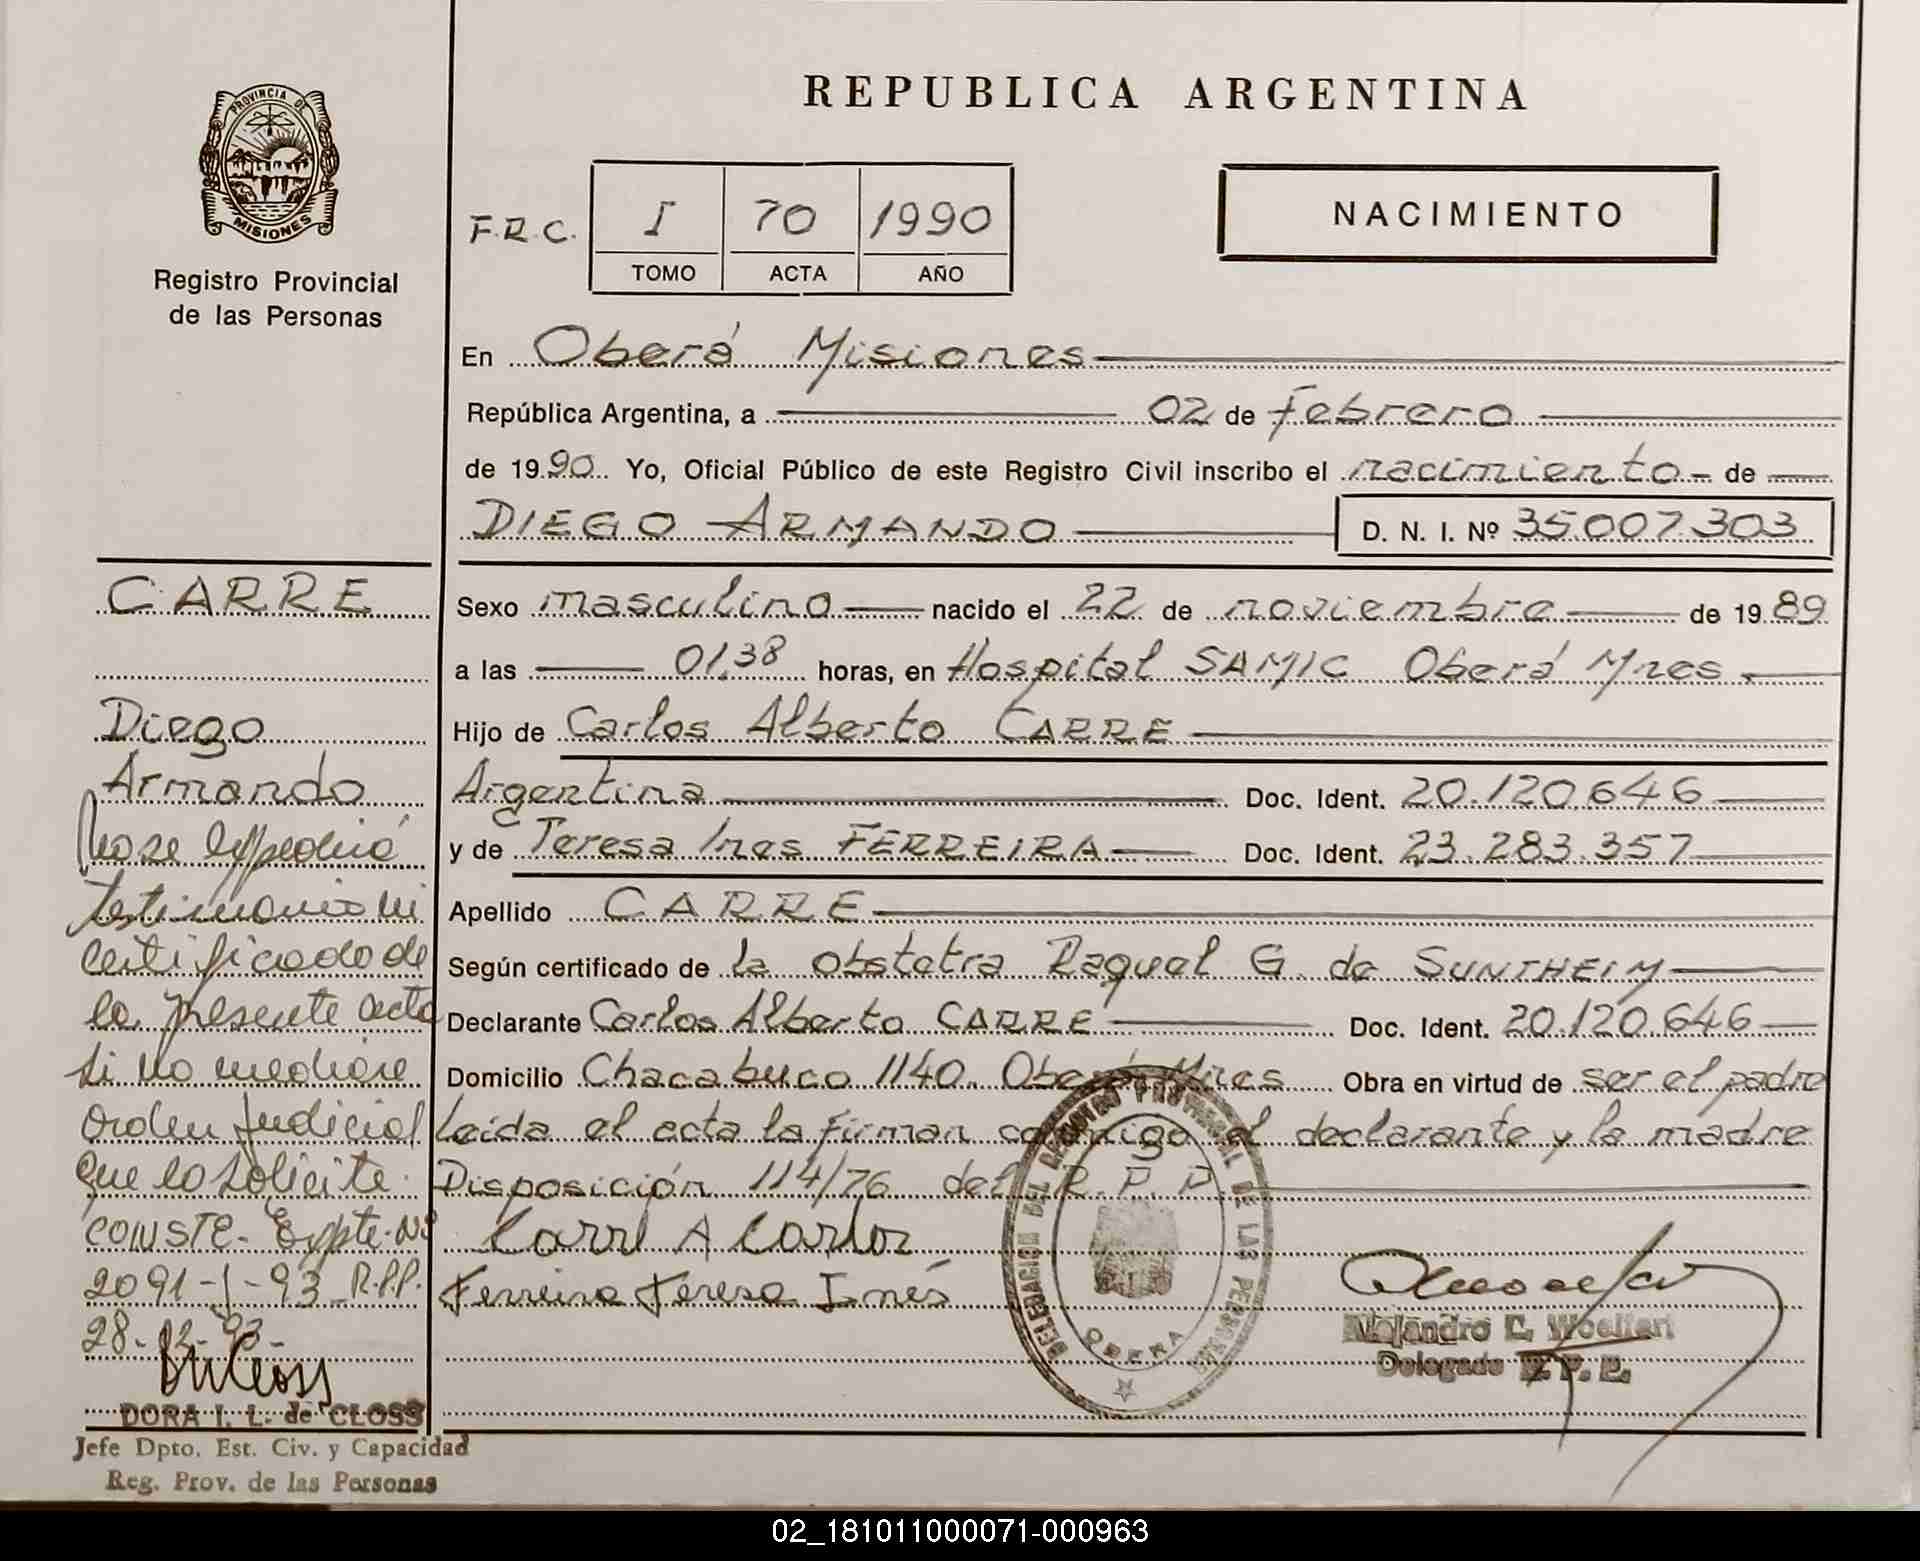 PROVINCIA DE
MISIONES
Registro Provincial
de las Personas
REPUBLICA ARGENTINA
F.R.C. I 70 1990
TOMO ACTA AÑO
NACIMIENTO
En Oberá Misiones
República Argentina, a 02 de Febrero
de 1990 Yo, Oficial Público de este Registro Civil inscribo el nacimiento de
DIEGO ARMANDO D. N. I. Nº 35.007.303
Sexo masculino nacido el 22 de noviembre de 1989
a las 01,38 horas, en Hospital SAMIC Oberá Mnes
Hijo de Carlos Alberto CARRE
Argentina Doc. Ident. 20.120.646
y de Teresa Ines FERREIRA Doc. Ident. 23.283.357
Apellido CARRE
Según certificado de la obstetra Raquel G. de SUNTHEIM
Declarante Carlos Alberto CARRE Doc. Ident. 20.120.646
Domicilio Chacabuco 1140. Oberá Mnes Obra en virtud de ser el padre
Leida el acta la firman conmigo el declarante y la madre
Disposición 114/76 del R.P.P.
Carre A Carlos
Ferreira Teresa Inés
DELEGACION DEL REGISTRO PROVINCIAL DE LAS PERSONAS
OBERA
Alejandro E. Woelfert
Delegado R. P. P.
CARRE
Diego
Armando
No se expedirá
testimonio ni
certificado de
la presente acta
si no mediare
orden judicial
que lo solicite.
CONSTE. Expte. Nº
2091-J-93 R.P.P.
28-12-93-
DORA I. L. de CLOSS
Jefe Dpto. Est. Civ. y Capacidad
Reg. Prov. de las Personas
02_181011000071-000963